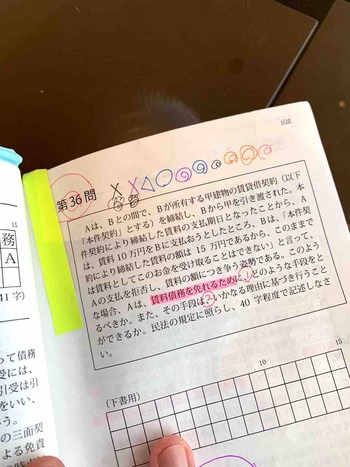 民法
第36問
Aは、Bとの間で、Bが所有する甲建物の賃貸借契約(以下
「本件契約」とする)を締結し、Bから甲を引き渡された。本
件契約により締結した賃料の支払期日となったことから、A
は、賃料10万円をBに支払おうとしたところ、Bは、「本件契
約により締結した賃料の額は15万円であるから、このままで
は賃料としてこのお金を受け取ることはできない」と言って、
Aの支払を拒否し、賃料の額につき争う姿勢である。このよう
な場合、Aは、賃料債務を免れるために、どのような手段をと
るべきか。また、その手段は、いかなる理由に基づき行うこと
ができるか。民法の規定に照らし、40字程度で記述しなさ
い。
(下書用)
10
15
15
務
A
41字)
って債務
受には、
引受は引
をいい、
う。
の三面契
よる免責